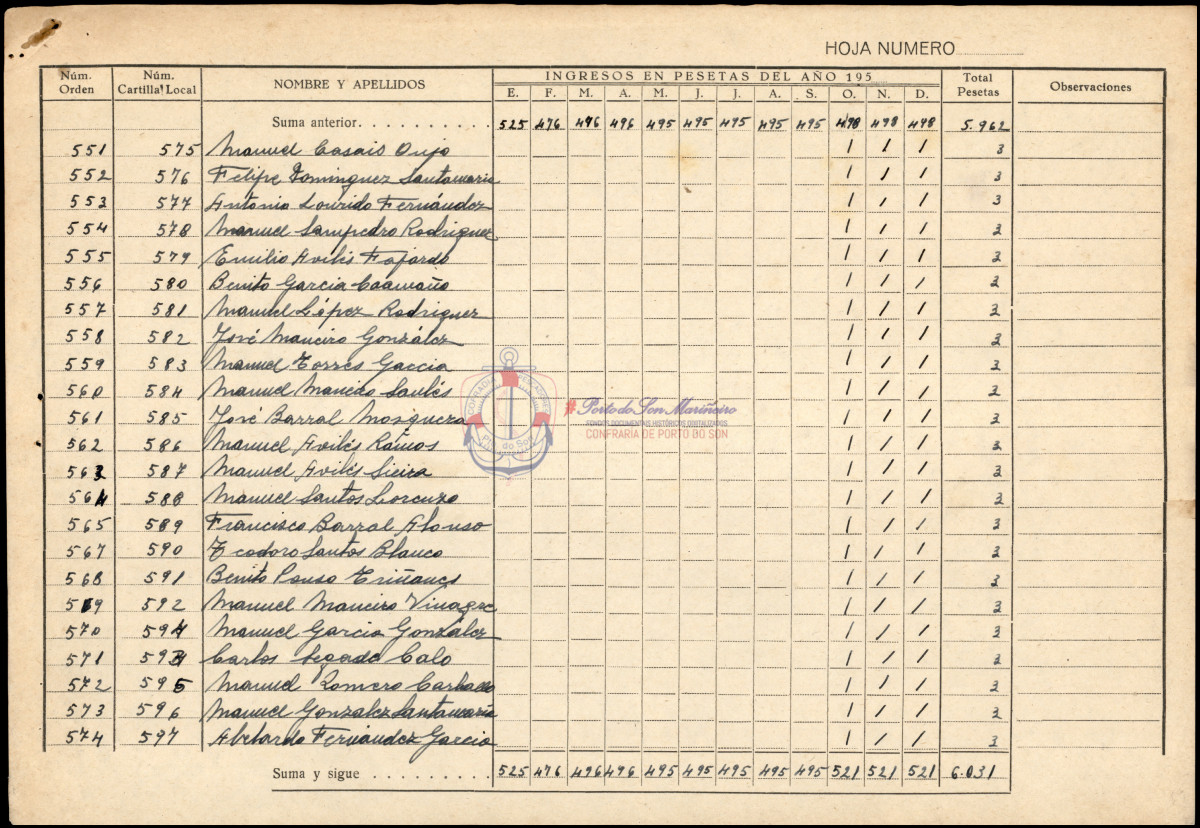 HOJA NUMERO
Núm. Orden Núm. Cartilla Local NOMBRE Y APELLIDOS INGRESOS EN PESETAS DEL AÑO 195 Total Pesetas Observaciones
E. F. M. A. M. J. J. A. S. O. N. D.
Suma anterior. 525 476 496 496 495 495 495 495 495 498 498 498 5.962
551 575 Manuel Casais Orijo 1 1 1 3
552 576 Felipe Dominguez Santamaria 1 1 1 3
553 577 Antonio Lourido Fernández 1 1 1 3
554 578 Manuel Sampedro Rodriguez 1 1 1 3
555 579 Emilio Avilés Fajardo 1 1 1 3
556 580 Benito Garcia Caamaño 1 1 1 3
557 581 Manuel López Rodriguez 1 1 1 3
558 582 José Maneiro González 1 1 1 3
559 583 Manuel Torres Garcia 1 1 1 3
560 584 Manuel Maneiro Saulés 1 1 1 3
561 585 José Barral Mosquera 1 1 1 3
562 586 Manuel Avilés Ramos 1 1 1 3
563 587 Manuel Avilés Sieira 1 1 1 3
564 588 Manuel Santos Lorenzo 1 1 1 3
565 589 Francisco Barral Alonso 1 1 1 3
567 590 Teodoro Santos Blanco 1 1 1 3
568 591 Benito Pouso Triñanes 1 1 1 3
569 592 Manuel Maneiro Vinagre 1 1 1 3
570 594 Manuel Garcia González 1 1 1 3
571 593 Carlos Segade Calo 1 1 1 3
572 595 Manuel Romero Carballo 1 1 1 3
573 596 Manuel Gonzalez Santamaria 1 1 1 3
574 597 Abelardo Fernández Garcia 1 1 1 3
Suma y sigue 525 476 496 496 495 495 495 495 495 521 521 521 6.031
#Porto do Son Mariñeiro
FONDOS DOCUMENTAIS HISTÓRICOS DIGITALIZADOS
CONFRARIA DE PORTO DO SON